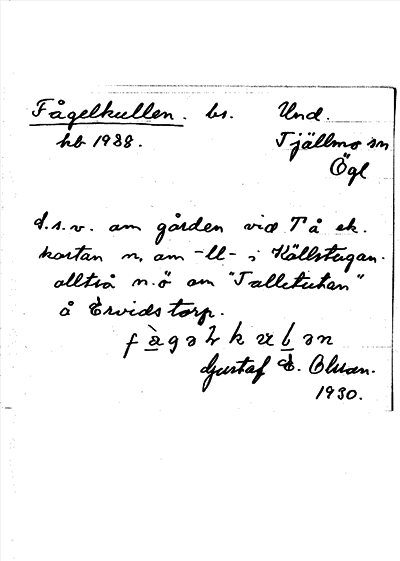 Fågelkullen. bs. Und.
hb 1938. Tjällmo sn
Ögl
d.s.v. om gården vid Tå ek.
kartan n, om -ll- i Källstugan.
alltså n.ö om "Talletutan"
å Ervidstorp.
Gustaf E. Olsson.
1930.